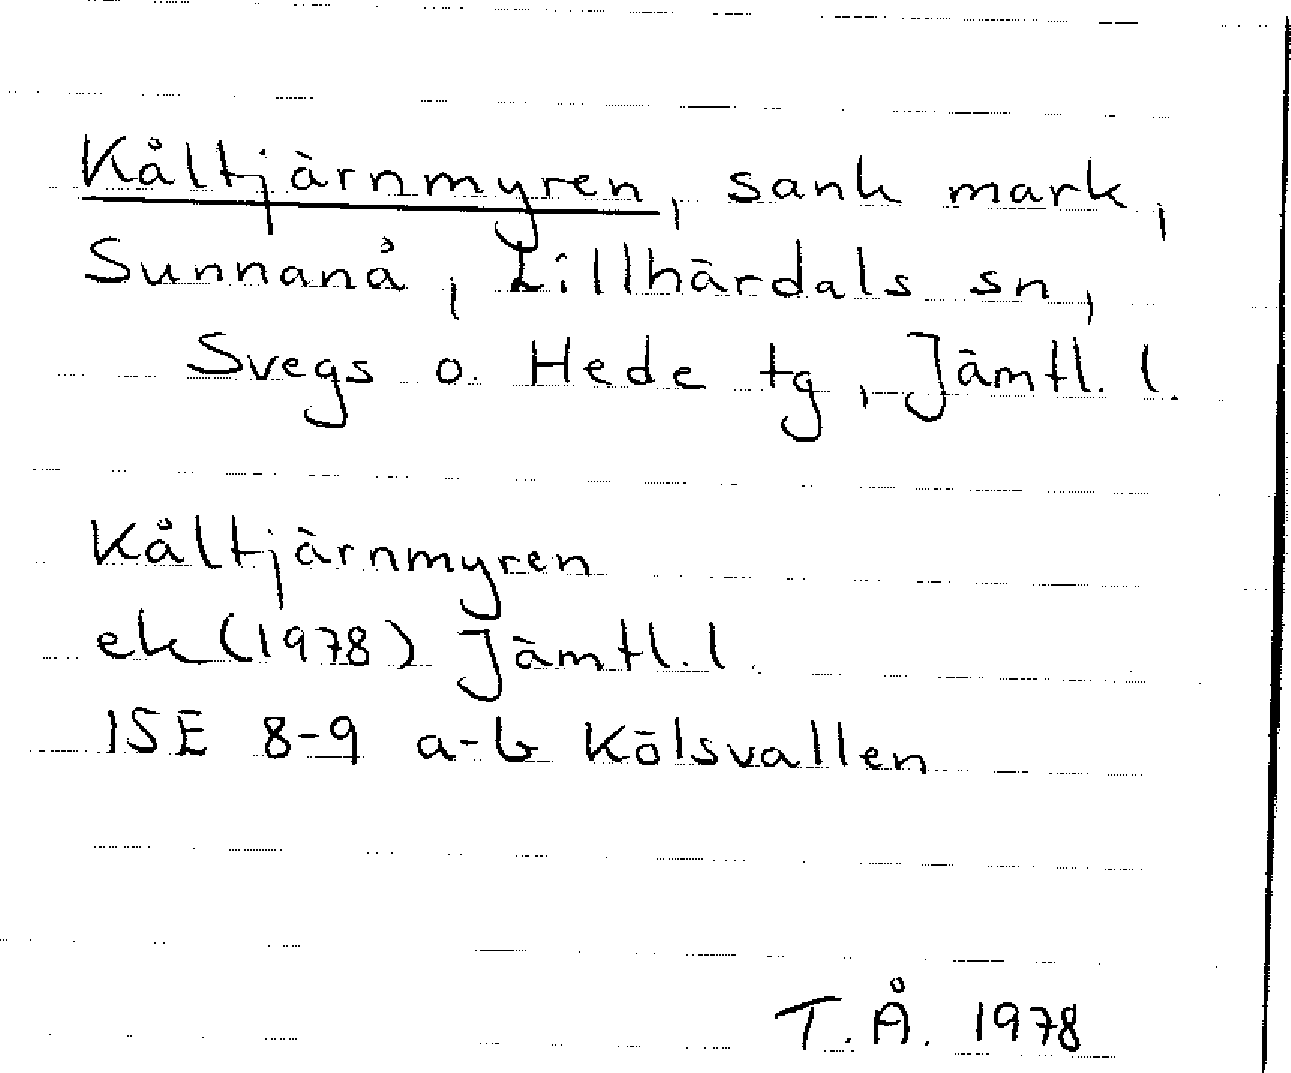 Kåltjärnmyren, sank mark,
Sunnanå, Lillhärdals sn,
Svegs o. Hede tg, Jämtl. l.
Kåltjärnmyren
ek (1978) Jämtl. l.
15E 8-9 a-b Kölsvallen
T.Å. 1978